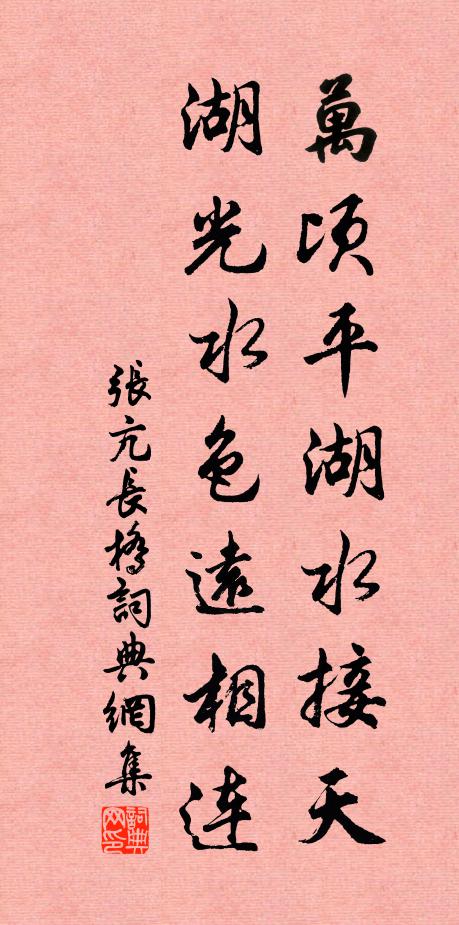 萬頃平湖水接天
湖光水色遠相連
張亢長橋詞典網集
詞典网印